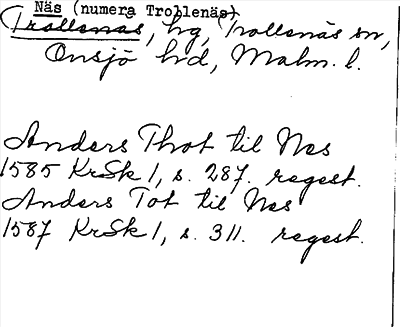 Näs (numera Trollenäs)
Trollenäs, hg, Trollenäs sn,
Onsjö hd, Malm. l.
Anders Thot til Nes
1585 KrSk 1, s. 287. regest.
Anders Tot til Nes
1587 KrSk 1, s. 311. regest.